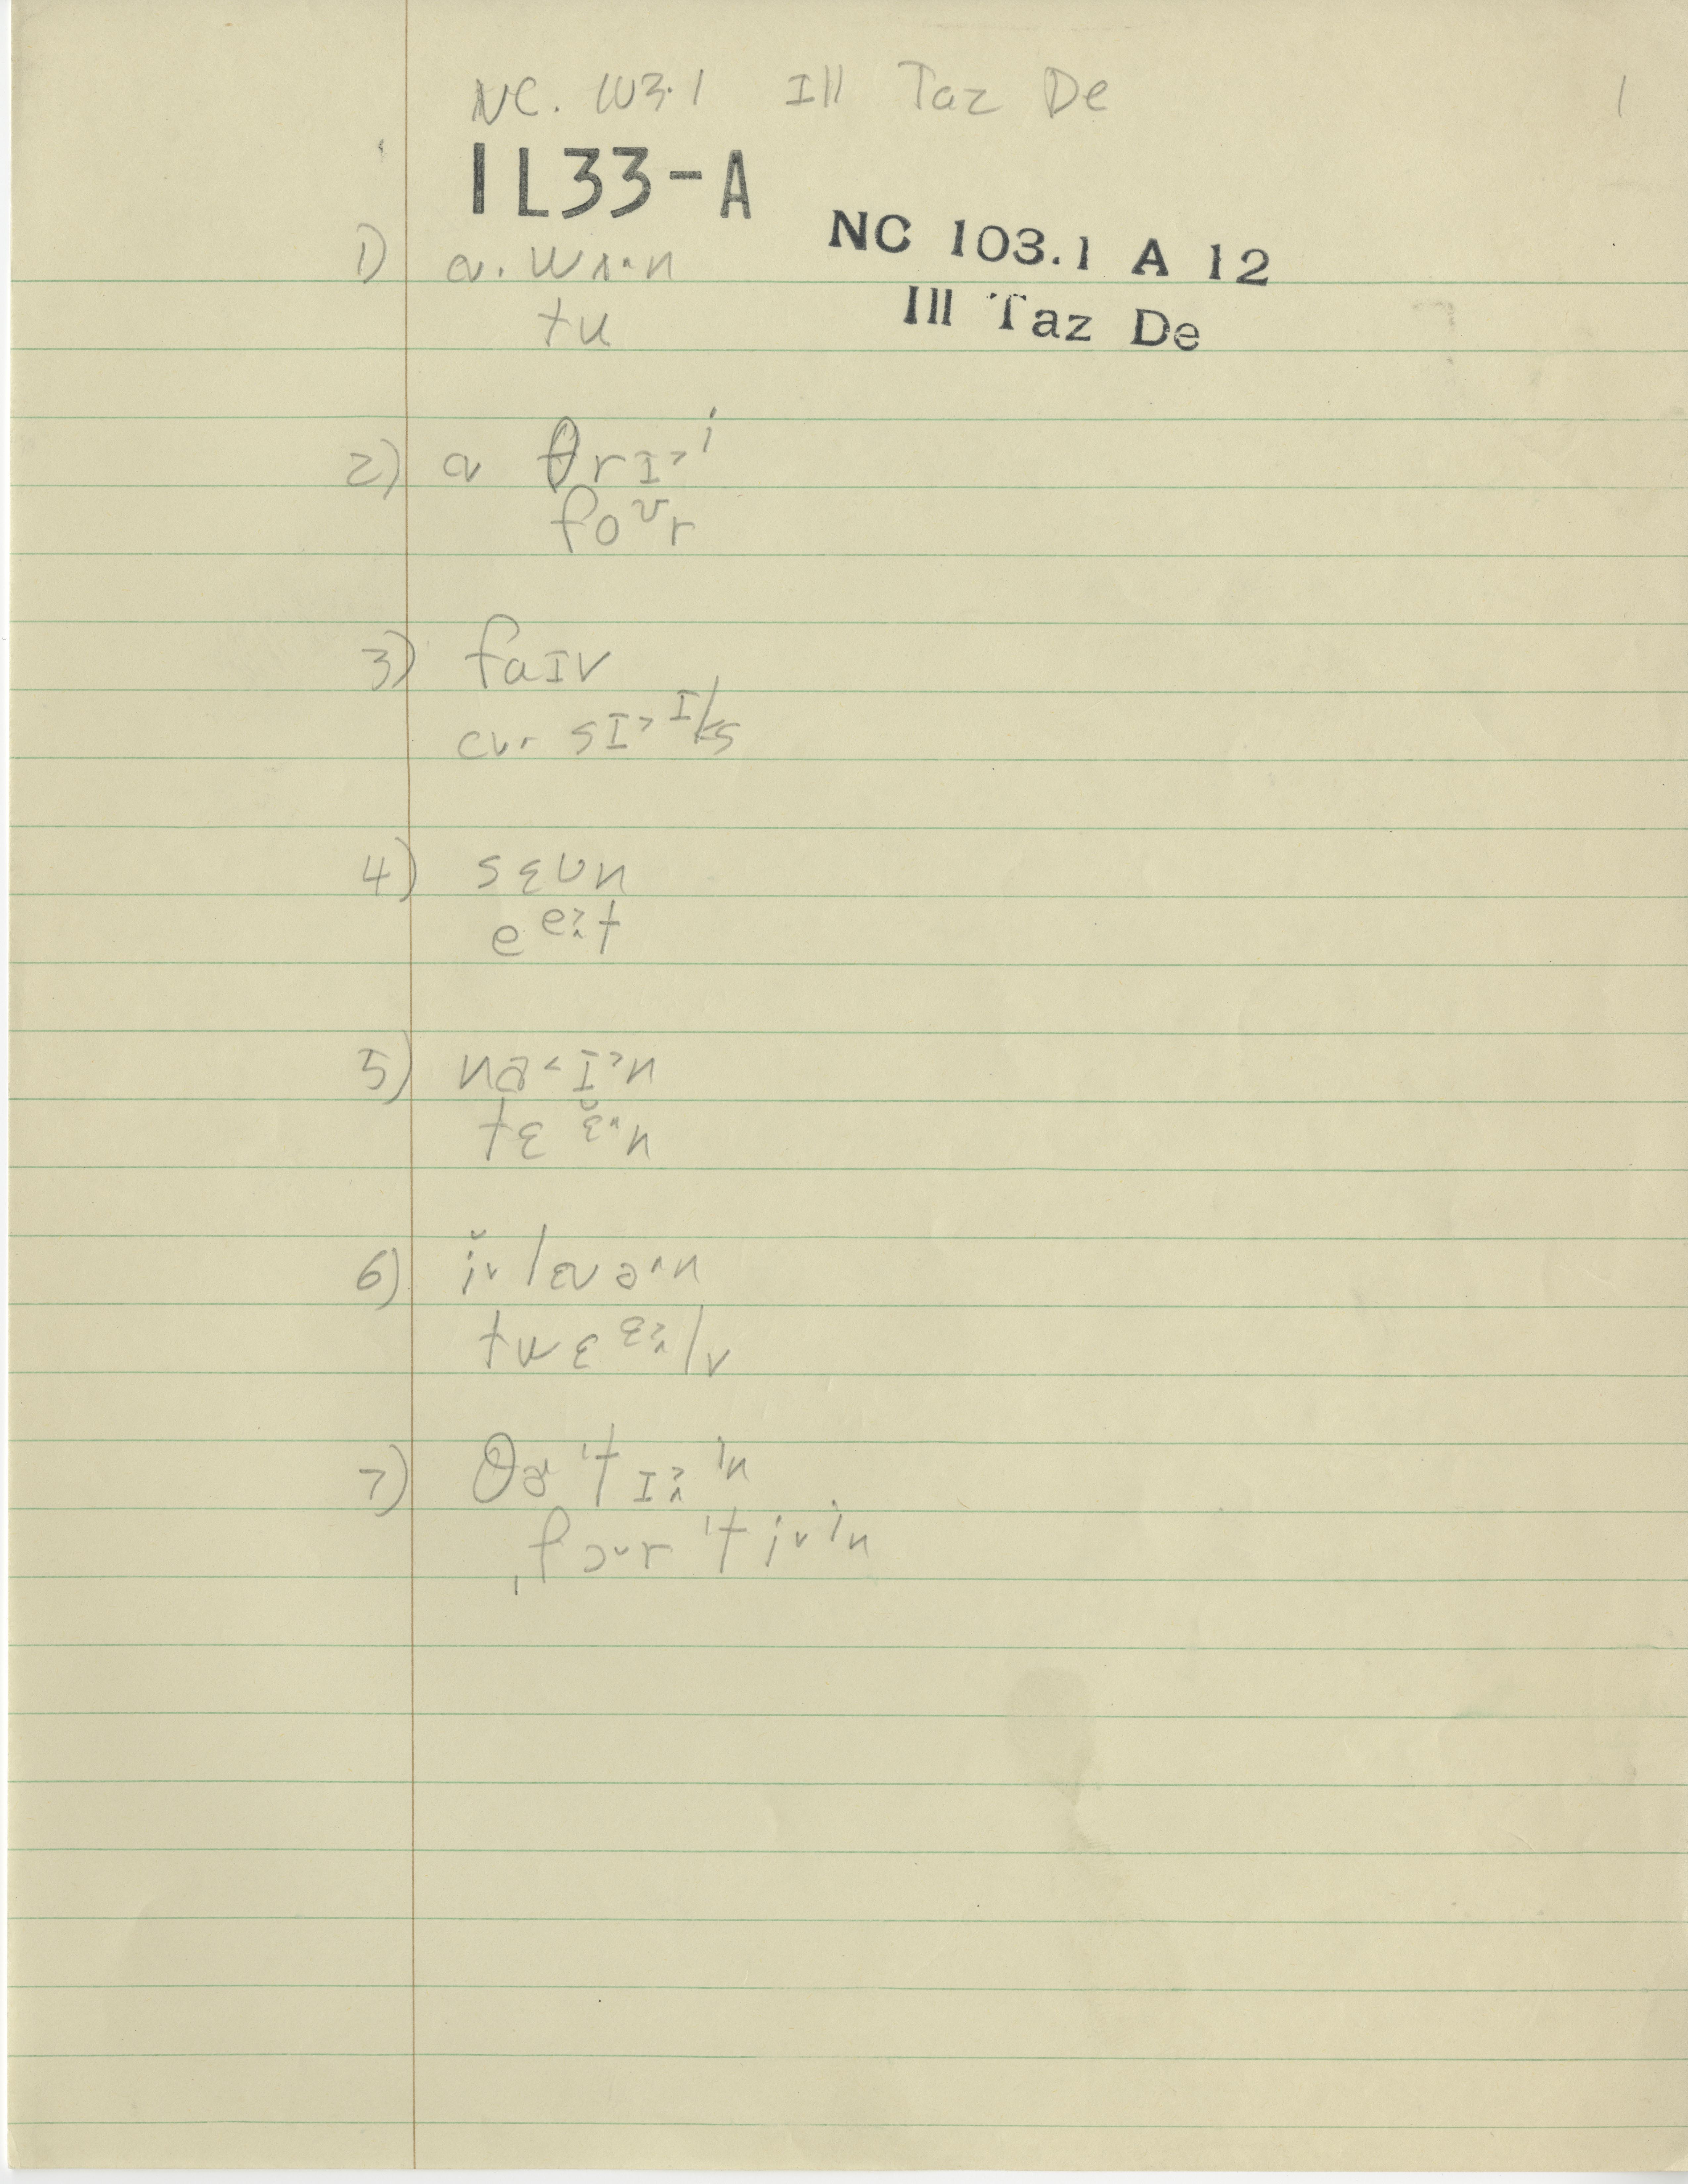 NC. 103.1 Ill Taz De 1
IL33-A
NC 103.1 A 12
Ill Taz De
1) a. wʌ·n
tu
2) a θrɪ˃ⁱ
foᶷr
3) faɪv
sɪ˃ᶦks
4) sɛvn
eᵉt
5) na˂ɪ˃n
tɛᵋ̆˄n
6) ĭ˅lɛvə˄n
twɛᵋlv
7) θɚ'tɪⁱn
ˌfɔ˅r'ti˅ⁱn